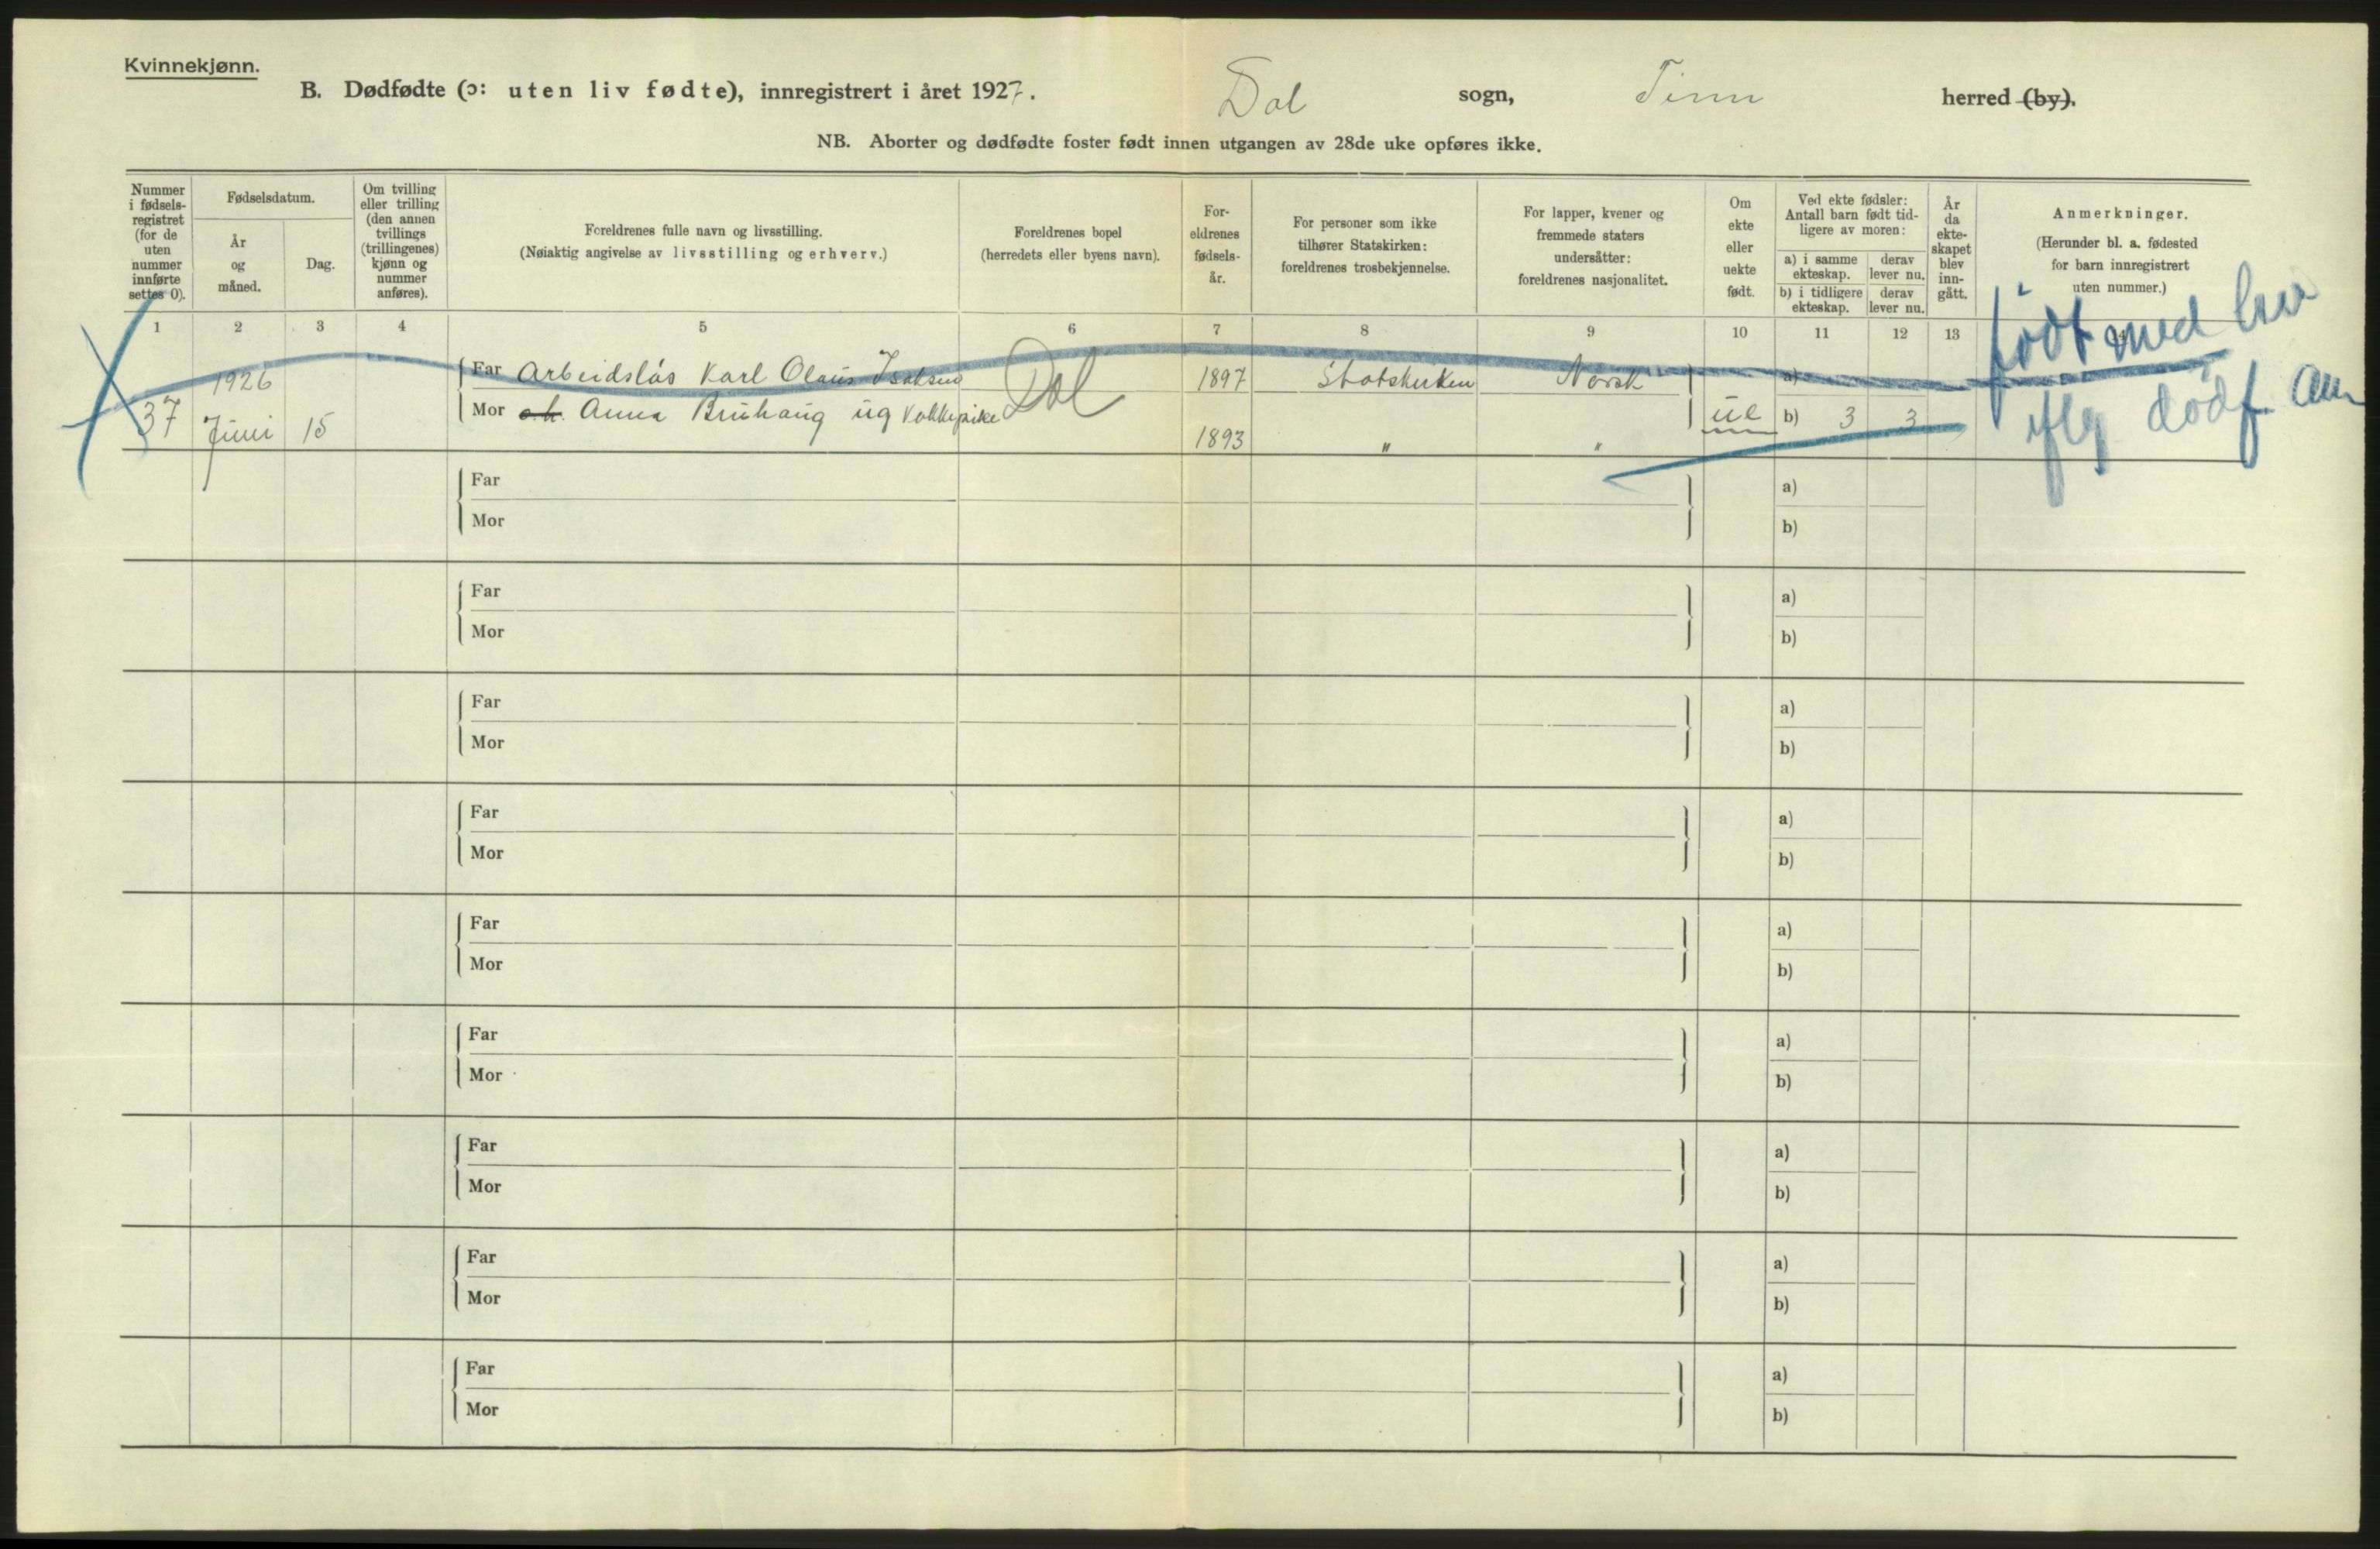 Kvinnekjønn.
B. Dødfødte (ɔ: uten liv fødte), innregistrert i året 1927. Dal sogn, Tinn herred (by).
NB. Aborter og dødfødte foster født innen utgangen av 28de uke opføres ikke.
Nummer i fødsels-registret (for de uten nummer innførte settes 0).
Fødselsdatum.
År og måned.
Dag.
Om tvilling eller trilling (den annen tvillings (trillingenes) kjønn og nummer anføres).
Foreldrenes fulle navn og livsstilling.
(Nøiaktig angivelse av livsstilling og erhverv.)
Foreldrenes bopel
(herredets eller byens navn).
For-eldrenes fødsels-år.
For personer som ikke tilhører Statskirken: foreldrenes trosbekjennelse.
For lapper, kvener og fremmede staters undersåtter: foreldrenes nasjonalitet.
Om ekte eller uekte født.
Ved ekte fødsler: Antall barn født tid-ligere av moren:
a) i samme ekteskap.
derav lever nu.
b) i tidligere ekteskap.
derav lever nu.
År da ekte-skapet blev inn-gått.
Anmerkninger.
(Herunder bl. a. fødested for barn innregistrert uten nummer.)
1 2 3 4 5 6 7 8 9 10 11 12 13
født med liv
iflg dødf.
1926
Far Arbeidsløs Karl Olaus Isaksen Dal 1897 Statskirken Norsk a)
37 Juni 15
Mor Anna Bruhaug ug Vakkepike 1893 " " ue b) 3 3
Far a)
Mor b)
Far a)
Mor b)
Far a)
Mor b)
Far a)
Mor b)
Far a)
Mor b)
Far a)
Mor b)
Far a)
Mor b)
Far a)
Mor b)
Far a)
Mor b)